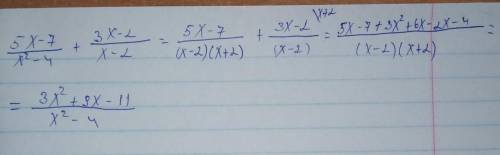 (5x-7)/(x²-4) + (3x-2)/(x-2) = (5x-7)/((x-2)(x+2)) + (3x-2)/(x-2) \x+2 = (5x-7+3x²+6x-2x-4)/((x-2)(x+2)) =
= (3x²+9x-11)/(x²-4)